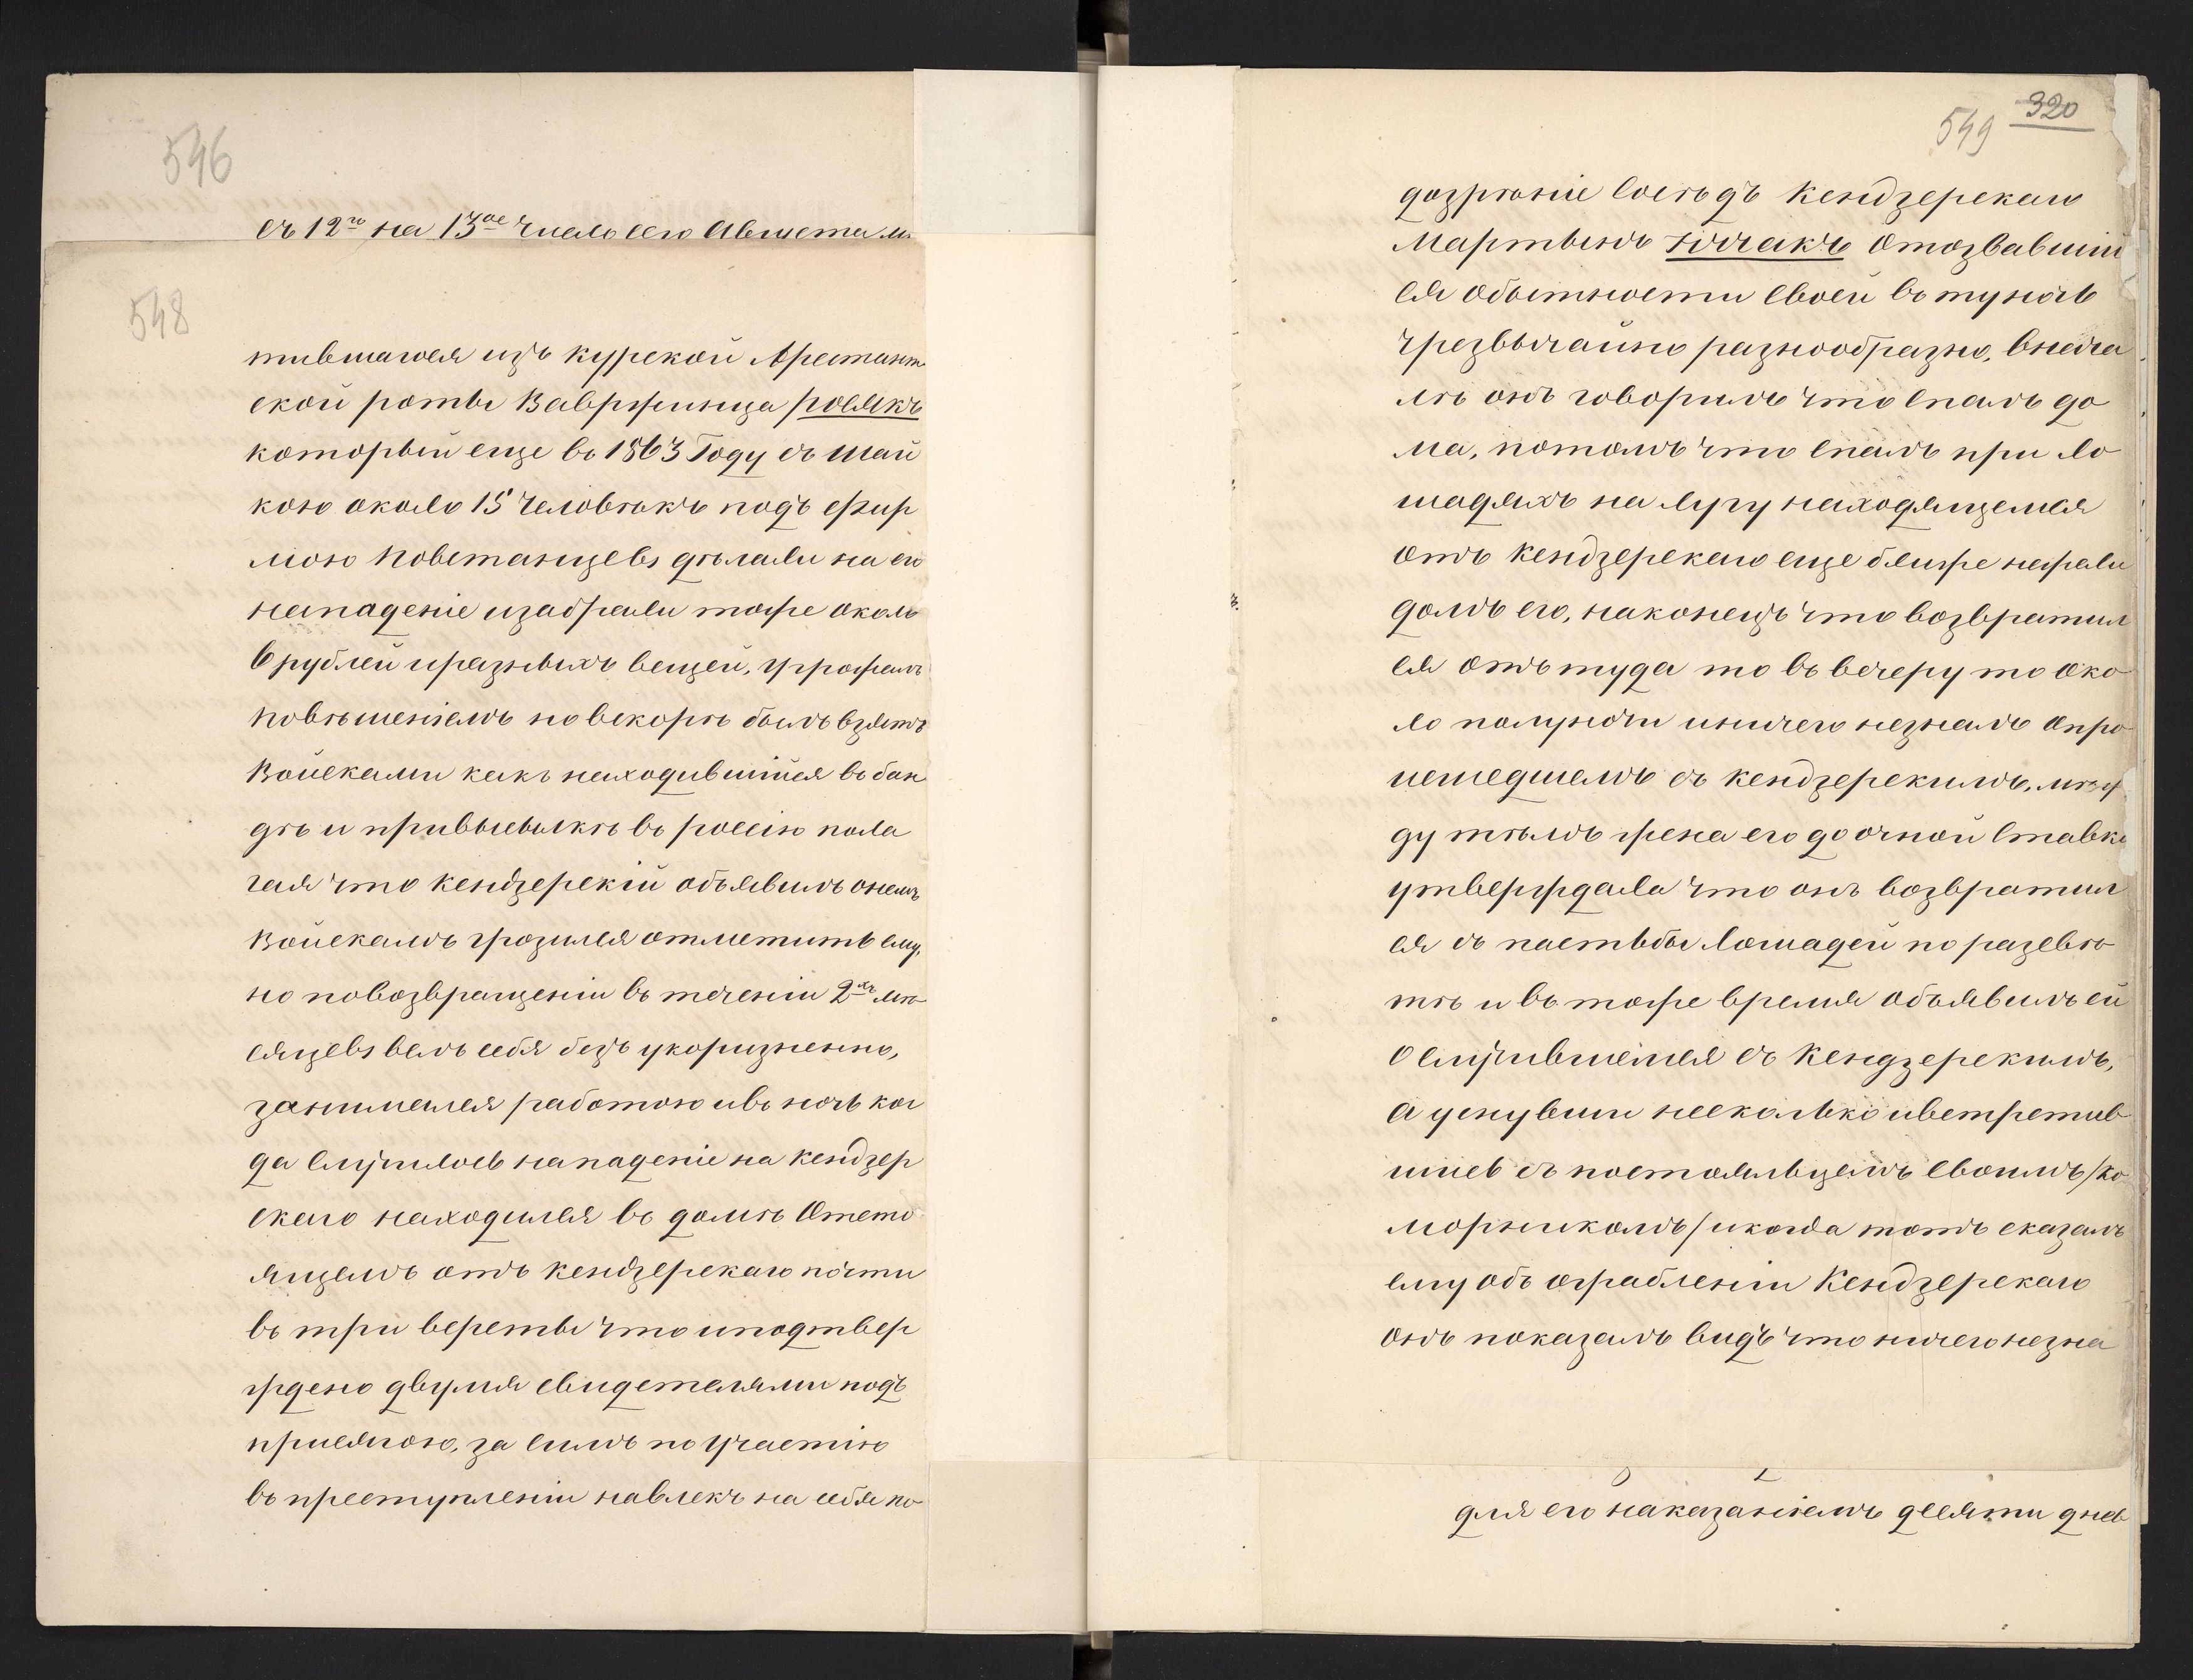 546
съ 12го на 13ое число сего Августа м
548
тившагося изъ курской Арестант
ской роты Вавржинца Росякъ
который еще въ 1863 Году съ шай
кою около 15 человѣкъ подъ фир
мою повстанцевъ дѣлали на его
нападеніе изабрали тоже около
6 рублей иразныхъ вещей, угрожалъ
повѣшеніемъ но вскорѣ былъ взятъ
Войсками какъ находившійся въ бан
дѣ и привысылкѣ въ россію пола
гая что кендзерскій объявилъ онемъ
Войскамъ грозился отмстить ему,
но повозвращеніи въ теченіи 2хъ мѣ
сяцевъ велъ себя безъ укоризненно,
занимался работою ивъ ночь ког
да случилось нападеніе на кендзер
скаго находился въ домѣ Отсто
ящемъ отъ кендзерскаго почти
въ три версты что иподтвер
ждено двумя свидетелями подъ
присягою, за симъ по Участію
въ преступленіи навлекъ на себя по
320
549
дозрѣніе Сосѣдъ Кендзерскаго
Мартынъ Отозвавшій
ся обытности своей въ туночь
чрезвычайно разнообразно, внача
лѣ онъ говорилъ что спалъ до
ма, потомъ что спалъ при ло
шадяхъ на лугу находящемся
отъ кендзерскаго еще ближе нежели
домъ его, наконецъ что возвратил
ся отътуда то въ вечеру то око
ло полуночи иничего незналъ опро
исшедшемъ съ кендзерскимъ, меж
ду тѣмъ жена его до очной ставки
утверждала что онъ возвратил
ся съ пастьбы лошадей по разсвѣ
тѣ и въ тоже время объявилъ ей
О случившемся съ Кендзерскимъ,
А уснувши несколько ивстретив
шись съ постояльцемъ своимъ /ко
морникомъ/ икогда тотъ сказалъ
ему объ ограбленіи Кендзерскаго
онъ показалъ видъ что ничегонезна
для его наказаніемъ десяти днев